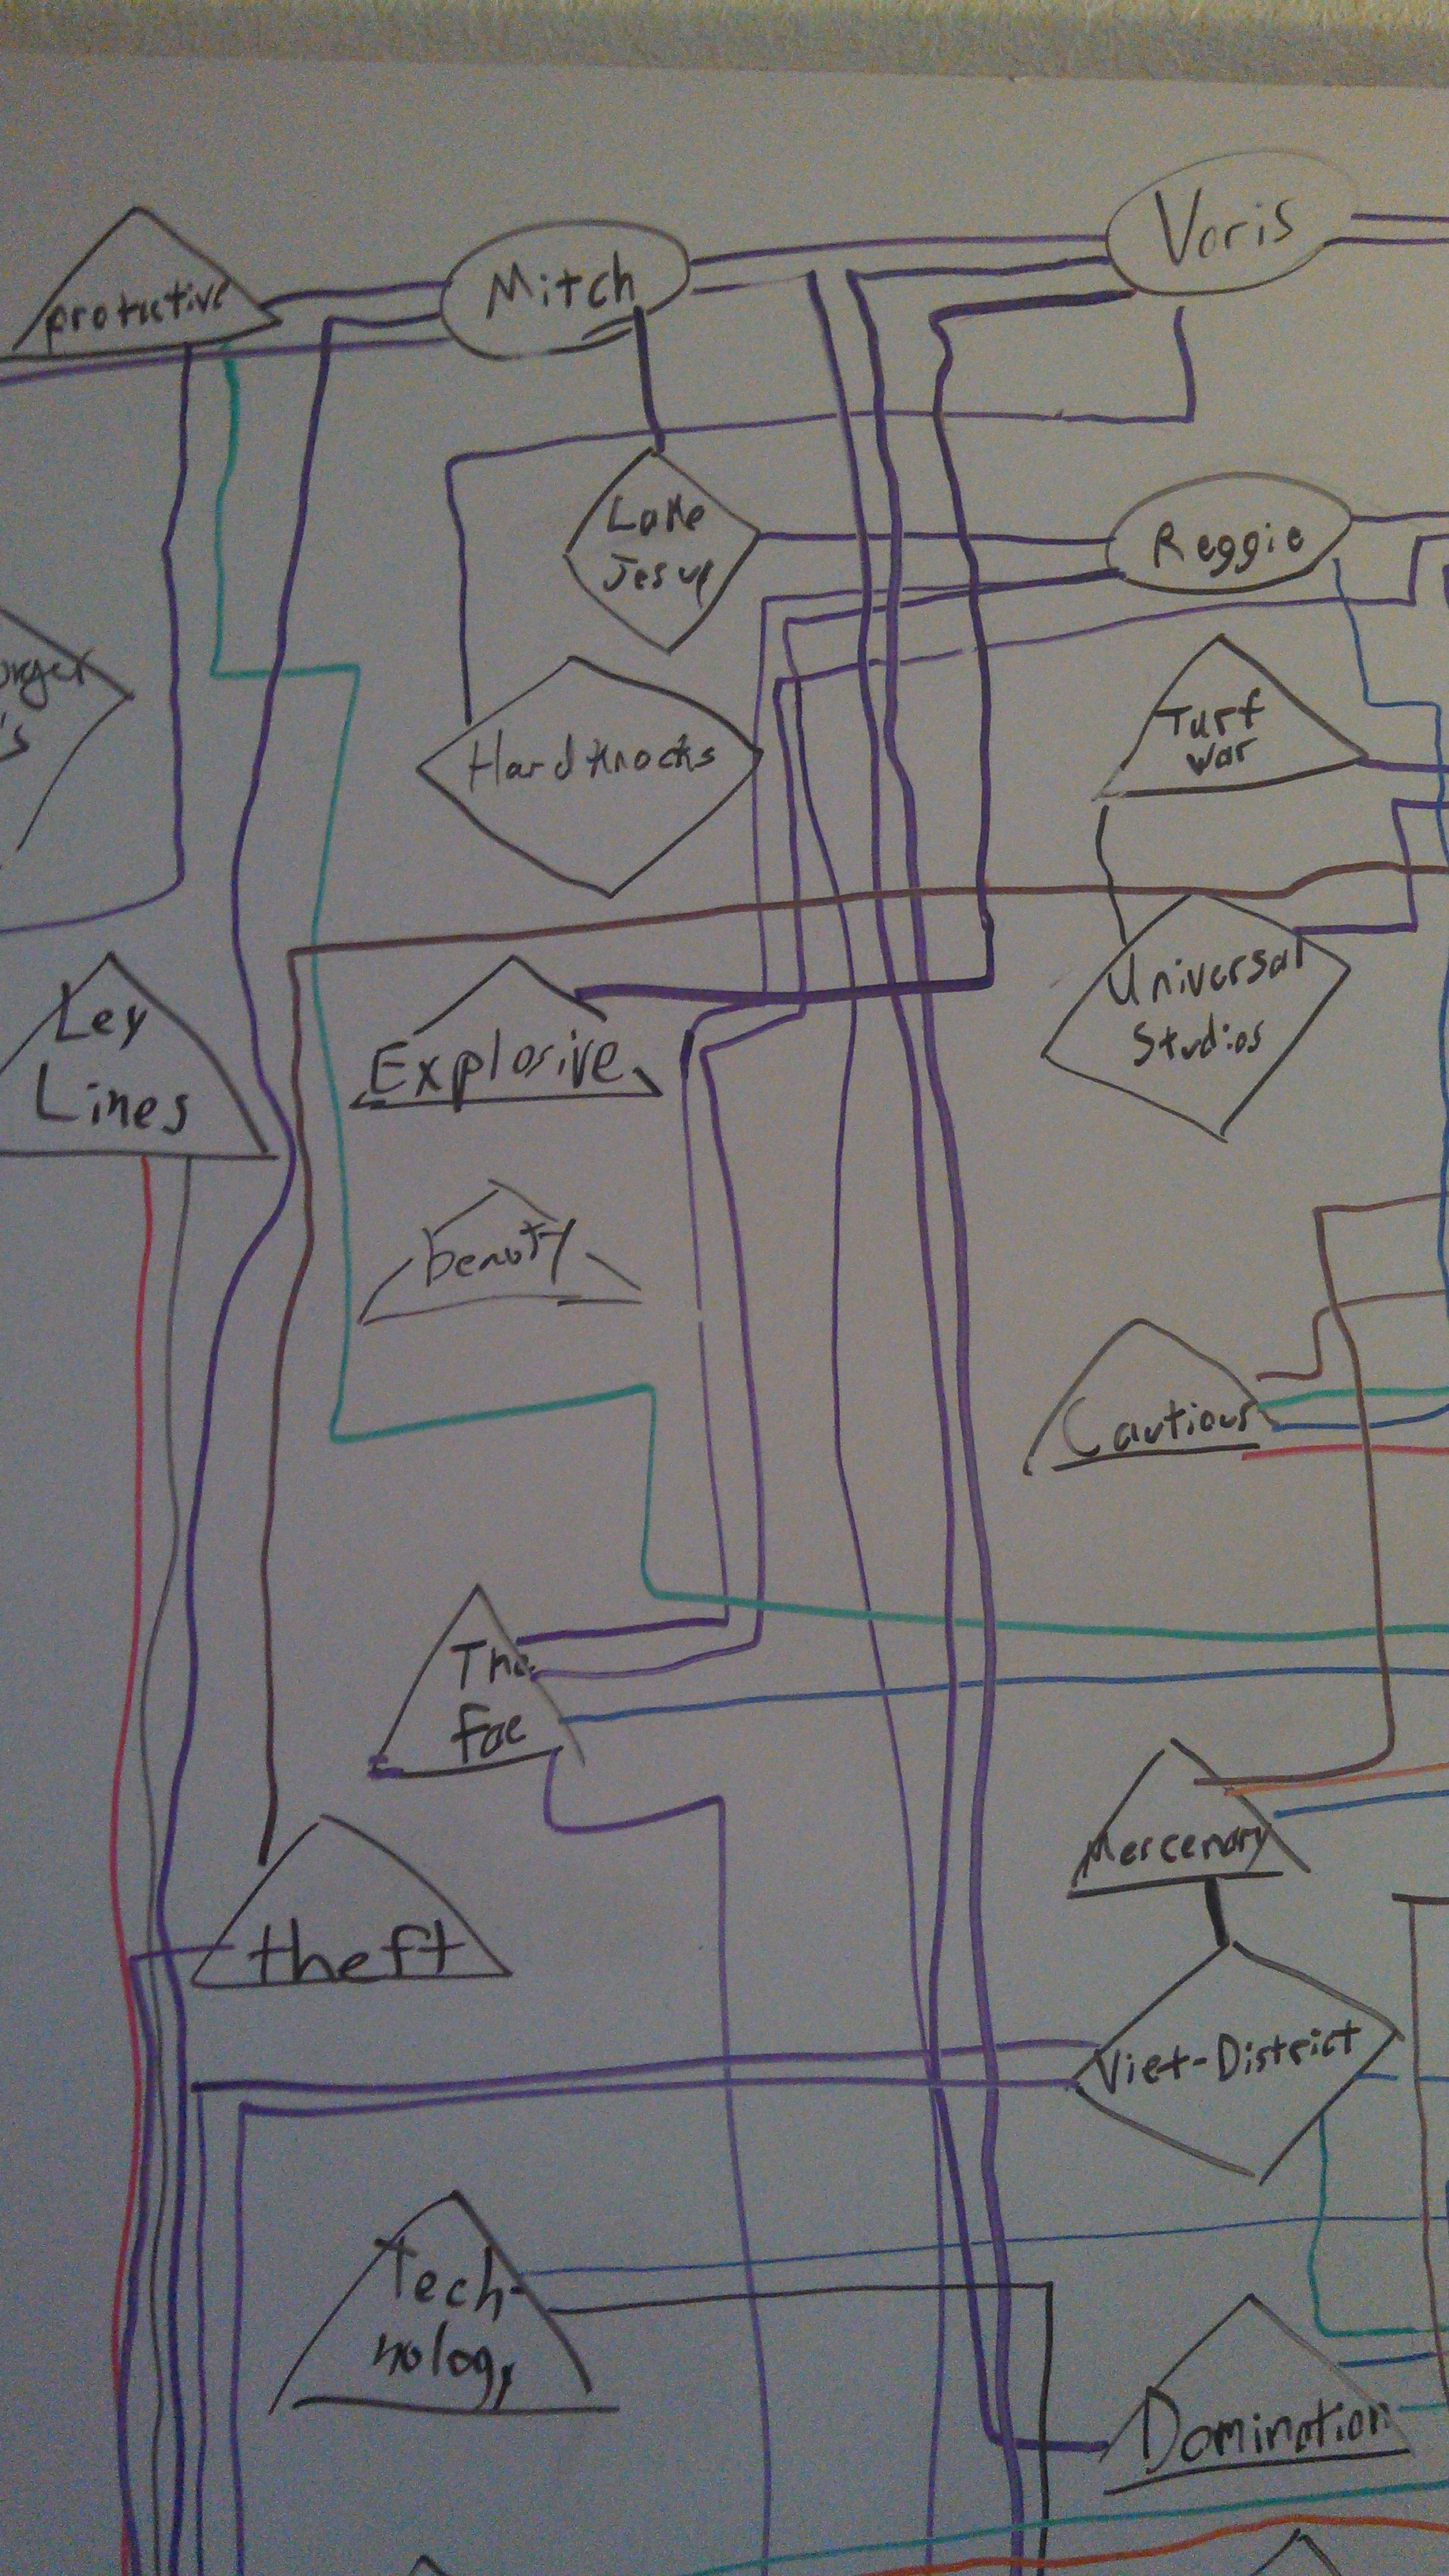 Voris
Mitch
protective
Lake
Jesup
Reggie
Turf
War
Hard Knocks
's
Universal
Studios
Ley
Lines
Explosive
beauty
Cautious
The
Fae
Mercenary
theft
Viet-District
Tech-
nology
Domination